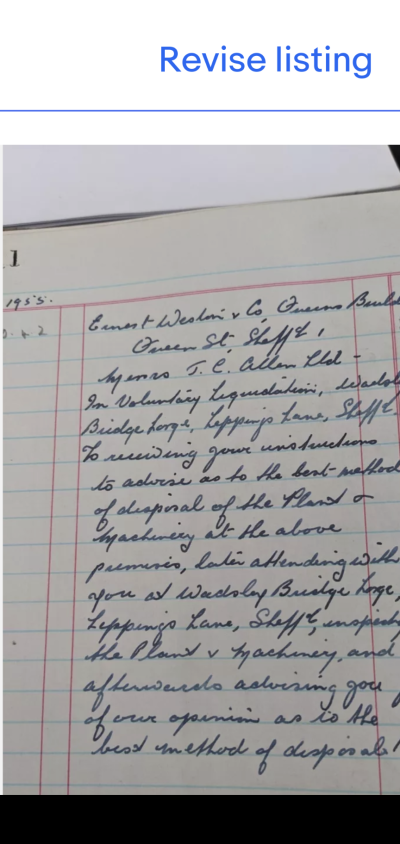 Revise listing
1
1955.
Ernest Weston & Co, Queens Build
Queen St. Sheff'd,
Messrs T. C. Allen Ltd -
In Voluntary Liquidation, Wadsl
Bridge Forge, Leppings Lane, Sheff'd.
To receiving your instructions
to advise as to the best method
of disposal of the Plant &
Machinery at the above
premises, later attending with
you at Wadsley Bridge Forge,
Leppings Lane, Sheff'd, inspect
the Plant & Machinery, and
afterwards advising you
of our opinion as to the
best method of disposal